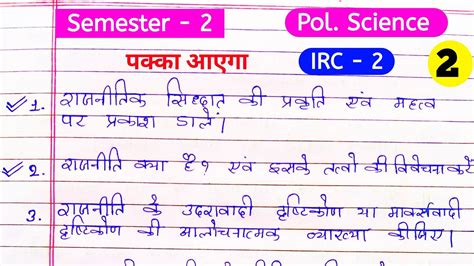 Semester - 2
Pol. Science
पक्का आएगा
IRC - 2
2
1. राजनीतिक सिद्धांत की प्रकृति एवं महत्व
पर प्रकाश डालें।
2. राजनीति क्या है? एवं इसके तत्वो की विवेचना करें
3. राजनीति के उदारवादी दृष्टिकोण या मार्क्सवादी
दृष्टिकोण की आलोचनात्मक व्याख्या कीजिए।